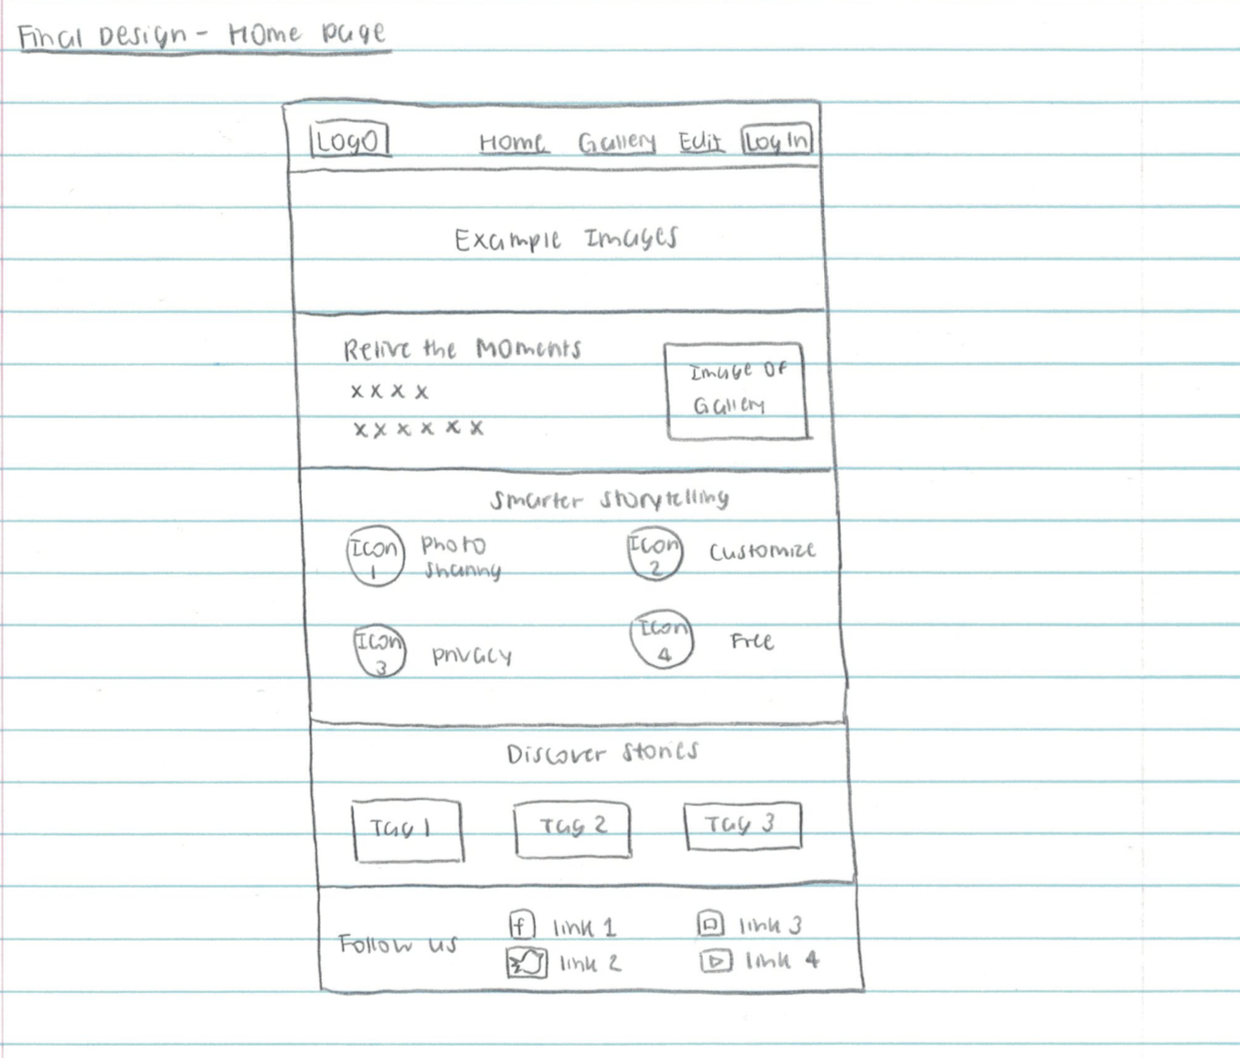 Final Design - Home page
Logo Home Gallery Edit Log In
Example Images
Relive the Moments
x x x x
x x x x x x
Image Of
Gallery
Smarter storytelling
Icon 1
Photo
Sharing
Icon 2
Customize
Icon 3
Privacy
Icon 4
Free
Discover Stories
Tag 1 Tag 2 Tag 3
Follow us
f link 1
link 2
link 3
link 4